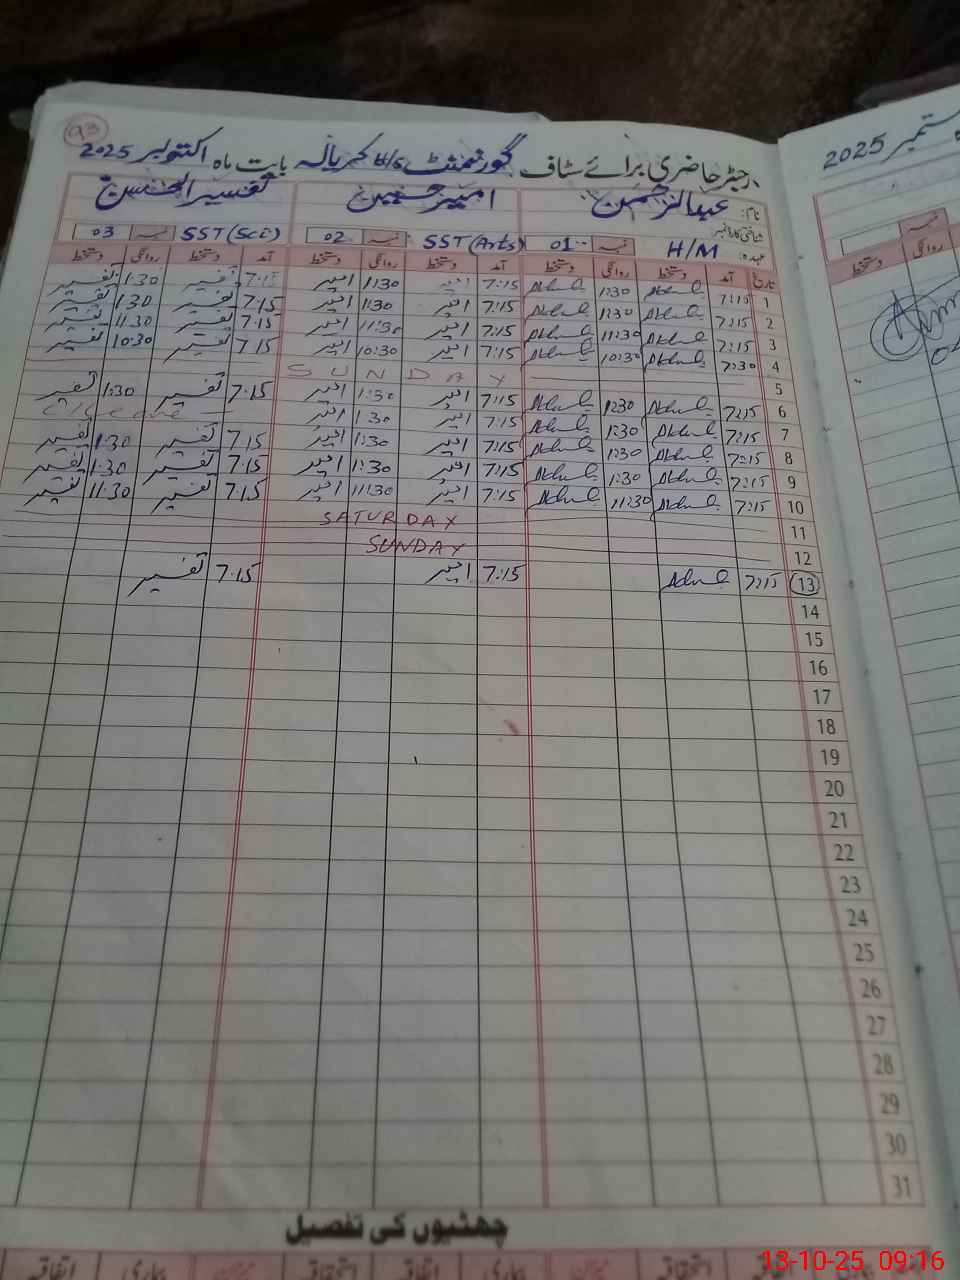 93
رجسٹر حاضری برائے سٹاف گورنمنٹ H/S کریالہ بابت ماہ اکتوبر 2025
ستمبر 2025
نام: عبدالرحمن امیر حسین تفسیر الحسن
شناختی کارڈ نمبر
عہدہ: H/M نمبر 01 SST (Arts) نمبر 02 SST (Sce) نمبر 03
تاریخ آمد دستخط روانگی دستخط آمد دستخط روانگی دستخط آمد دستخط روانگی دستخط
روانگی دستخط
1 7:15 1:30 7:15 امیر 1:30 امیر 7:15 تفسیر 1:30 تفسیر
2 7:15 1:30 7:15 امیر 1:30 امیر 7:15 تفسیر 1:30 تفسیر
3 7:15 11:30 7:15 امیر 11:30 امیر 7:15 تفسیر 11:30 تفسیر
4 7:30 10:30 7:15 امیر 10:30 امیر 7:15 تفسیر 10:30 تفسیر
5 SUNDAY
6 7:15 1:30 7:15 امیر 1:30 امیر 7:15 تفسیر 1:30 تفسیر
7 7:15 1:30 7:15 امیر 1:30 امیر
8 7:15 1:30 7:15 امیر 1:30 امیر 7:15 تفسیر 1:30 تفسیر
9 7:15 1:30 7:15 امیر 1:30 امیر 7:15 تفسیر 1:30 تفسیر
10 7:15 11:30 7:15 امیر 11:30 امیر 7:15 تفسیر 11:30 تفسیر
11 SATURDAY
12 SUNDAY
13 7:15 7:15 امیر 7:15 تفسیر
14
15
16
17
18
19
20
21
22
23
24
25
26
27
28
29
30
31
چھٹیوں کی تفصیل
اتفاقیہ بیماری استحقاقیہ اتفاقیہ بیماری استحقاقیہ اتفاقیہ
13-10-25 09:16